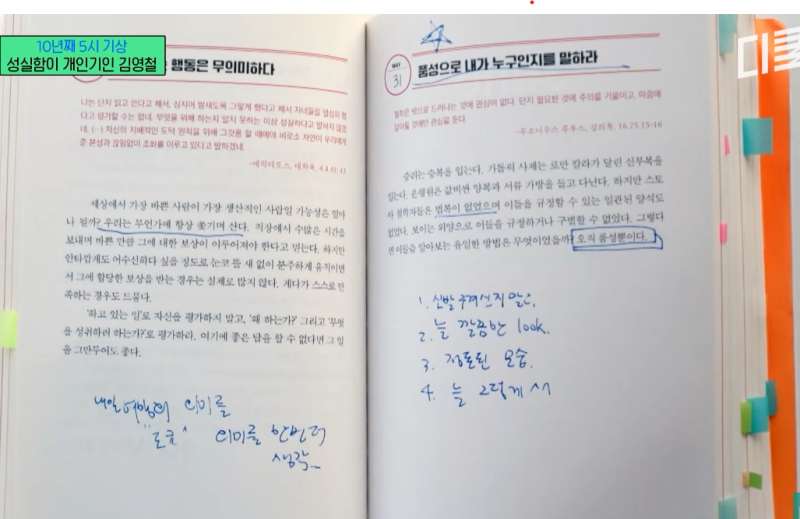 10년째 5시 기상
성실함이 개인기인 김영철
디클
행동은 무의미하다
나는 단지 읽고 쓴다고 해서, 심지어 밤새도록 그렇게 했다고 해서 자네들을 열심히 했
다고 평가할 수는 없네. 무엇을 위해 하는지 알지 못하는 이상 성실하다고 말하지 않겠
네. (…) 자신의 지배적인 도덕 원칙을 위해 그것을 할 때에야 비로소 자연이 우리에게
준 본성과 끊임없이 조화를 이루고 있다고 말하겠네.
-에픽테토스, 대화록, 4.4.41;43
세상에서 가장 바쁜 사람이 가장 생산적인 사람일 가능성은 얼마
나 될까? 우리는 무언가에 항상 쫓기며 산다. 직장에서 수많은 시간을
보내며 바쁜 만큼 그에 대한 보상이 이루어져야 한다고 믿는다. 하지만
안타깝게도 어수선하다 싶을 정도로 눈코 뜰 새 없이 분주하게 움직이면
서 그에 합당한 보상을 받는 경우는 실제로 많지 않다. 게다가 스스로 만
족하는 경우도 드물다.
'하고 있는 일'로 자신을 평가하지 말고, '왜 하는가?' 그리고 '무엇
을 성취하려 하는가?'로 평가하라. 여기에 좋은 답을 할 수 없다면 그 일
을 그만두어도 좋다.
내일 여행의 의미를
"도쿄" 의미를 한번 더
생각..
MAY
31
품성으로 내가 누구인지를 말하라
철학은 밖으로 드러나는 것에 관심이 없다. 단지 필요한 것에 주의를 기울이고, 마음에
담아둘 것에만 관심을 둔다.
-무소니우스 루푸스, 강의록, 16.75.15-16
승려는 승복을 입는다. 가톨릭 사제는 로만 칼라가 달린 신부복을
입는다. 은행원은 값비싼 양복과 서류 가방을 들고 다닌다. 하지만 스토
아 철학자들은 법복이 없었으며 이들을 규정할 수 있는 일관된 양식도
없었다. 보이는 외양으로 이들을 규정하거나 구별할 수 없었다. 그렇다
면 이들을 알아보는 유일한 방법은 무엇이었을까? 오직 품성뿐이다.
1. 신발 구겨신지 않고,
2. 늘 깔끔한 look.
3. 정돈된 모습.
4. 늘 그렇게 서